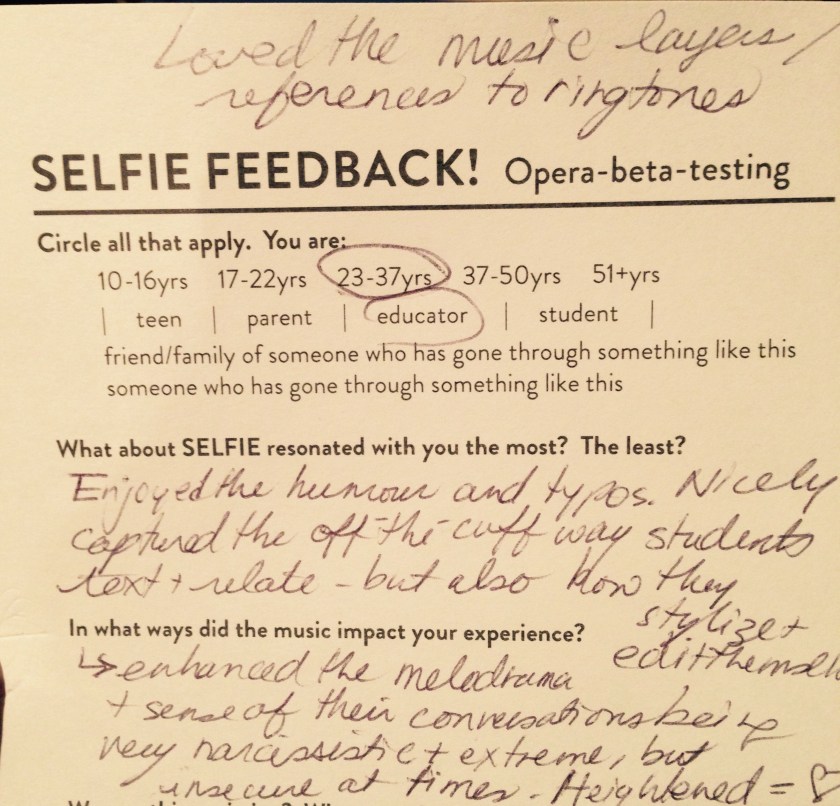 Loved the music layers /
references to ringtones
SELFIE FEEDBACK! Opera-beta-testing
Circle all that apply. You are:
10-16yrs 17-22yrs 23-37yrs 37-50yrs 51+yrs
| teen | parent | educator | student |
friend/family of someone who has gone through something like this
someone who has gone through something like this
What about SELFIE resonated with you the most? The least?
Enjoyed the humour and typos. Nicely
captured the off-the-cuff way students
text + relate - but also how they
stylize +
edit themsel
In what ways did the music impact your experience?
↳ enhanced the melodrama
+ sense of their conversations being
very narcissistic + extreme, but
insecure at times. Heightened = ♡